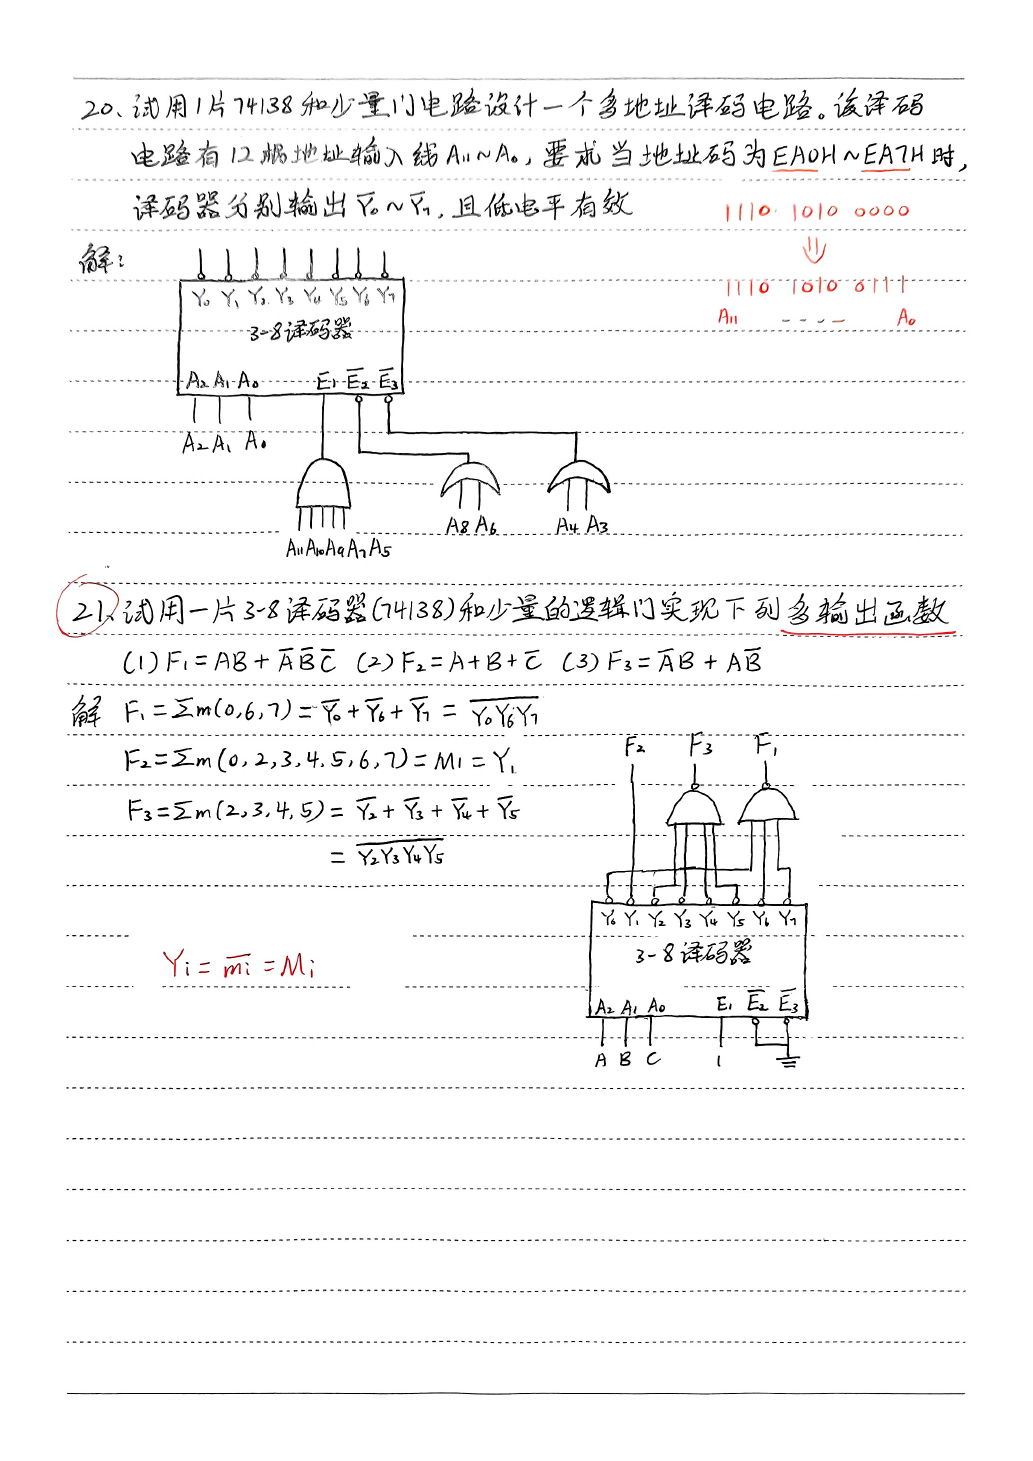 20、试用1片74138和少量门电路设计一个多地址译码电路。该译码
电路有12根地址输入线A₁₁~A₀,要求当地址码为EA0H~EA7H时,
译码器分别输出Y̅₀~Y̅₇,且低电平有效
1110 1010 0000
⇓
1110 1010 0111
A₁₁ ---- A₀
解:
Y₀ Y₁ Y₂ Y₃ Y₄ Y₅ Y₆ Y₇
3-8译码器
A₂ A₁ A₀ E₁ E̅₂ E̅₃
A₂ A₁ A₀
A₈ A₆ A₄ A₃
A₁₁A₁₀A₉A₇A₅
21、试用一片3-8译码器(74138)和少量的逻辑门实现下列多输出函数
(1) F₁=AB+A̅B̅C̅ (2) F₂=A+B+C̅ (3) F₃=A̅B+AB̅
解 F₁=Σm(0,6,7)=Y̅₀+Y̅₆+Y̅₇=\overline{Y₀Y₆Y₇}
F₂=Σm(0,2,3,4,5,6,7)=M₁=Y₁
F₃=Σm(2,3,4,5)=Y̅₂+Y̅₃+Y̅₄+Y̅₅
=\overline{Y₂Y₃Y₄Y₅}
F₂ F₃ F₁
Y₀ Y₁ Y₂ Y₃ Y₄ Y₅ Y₆ Y₇
3-8译码器
A₂ A₁ A₀ E₁ E̅₂ E̅₃
A B C 1
Yi=\overline{mi}=Mi